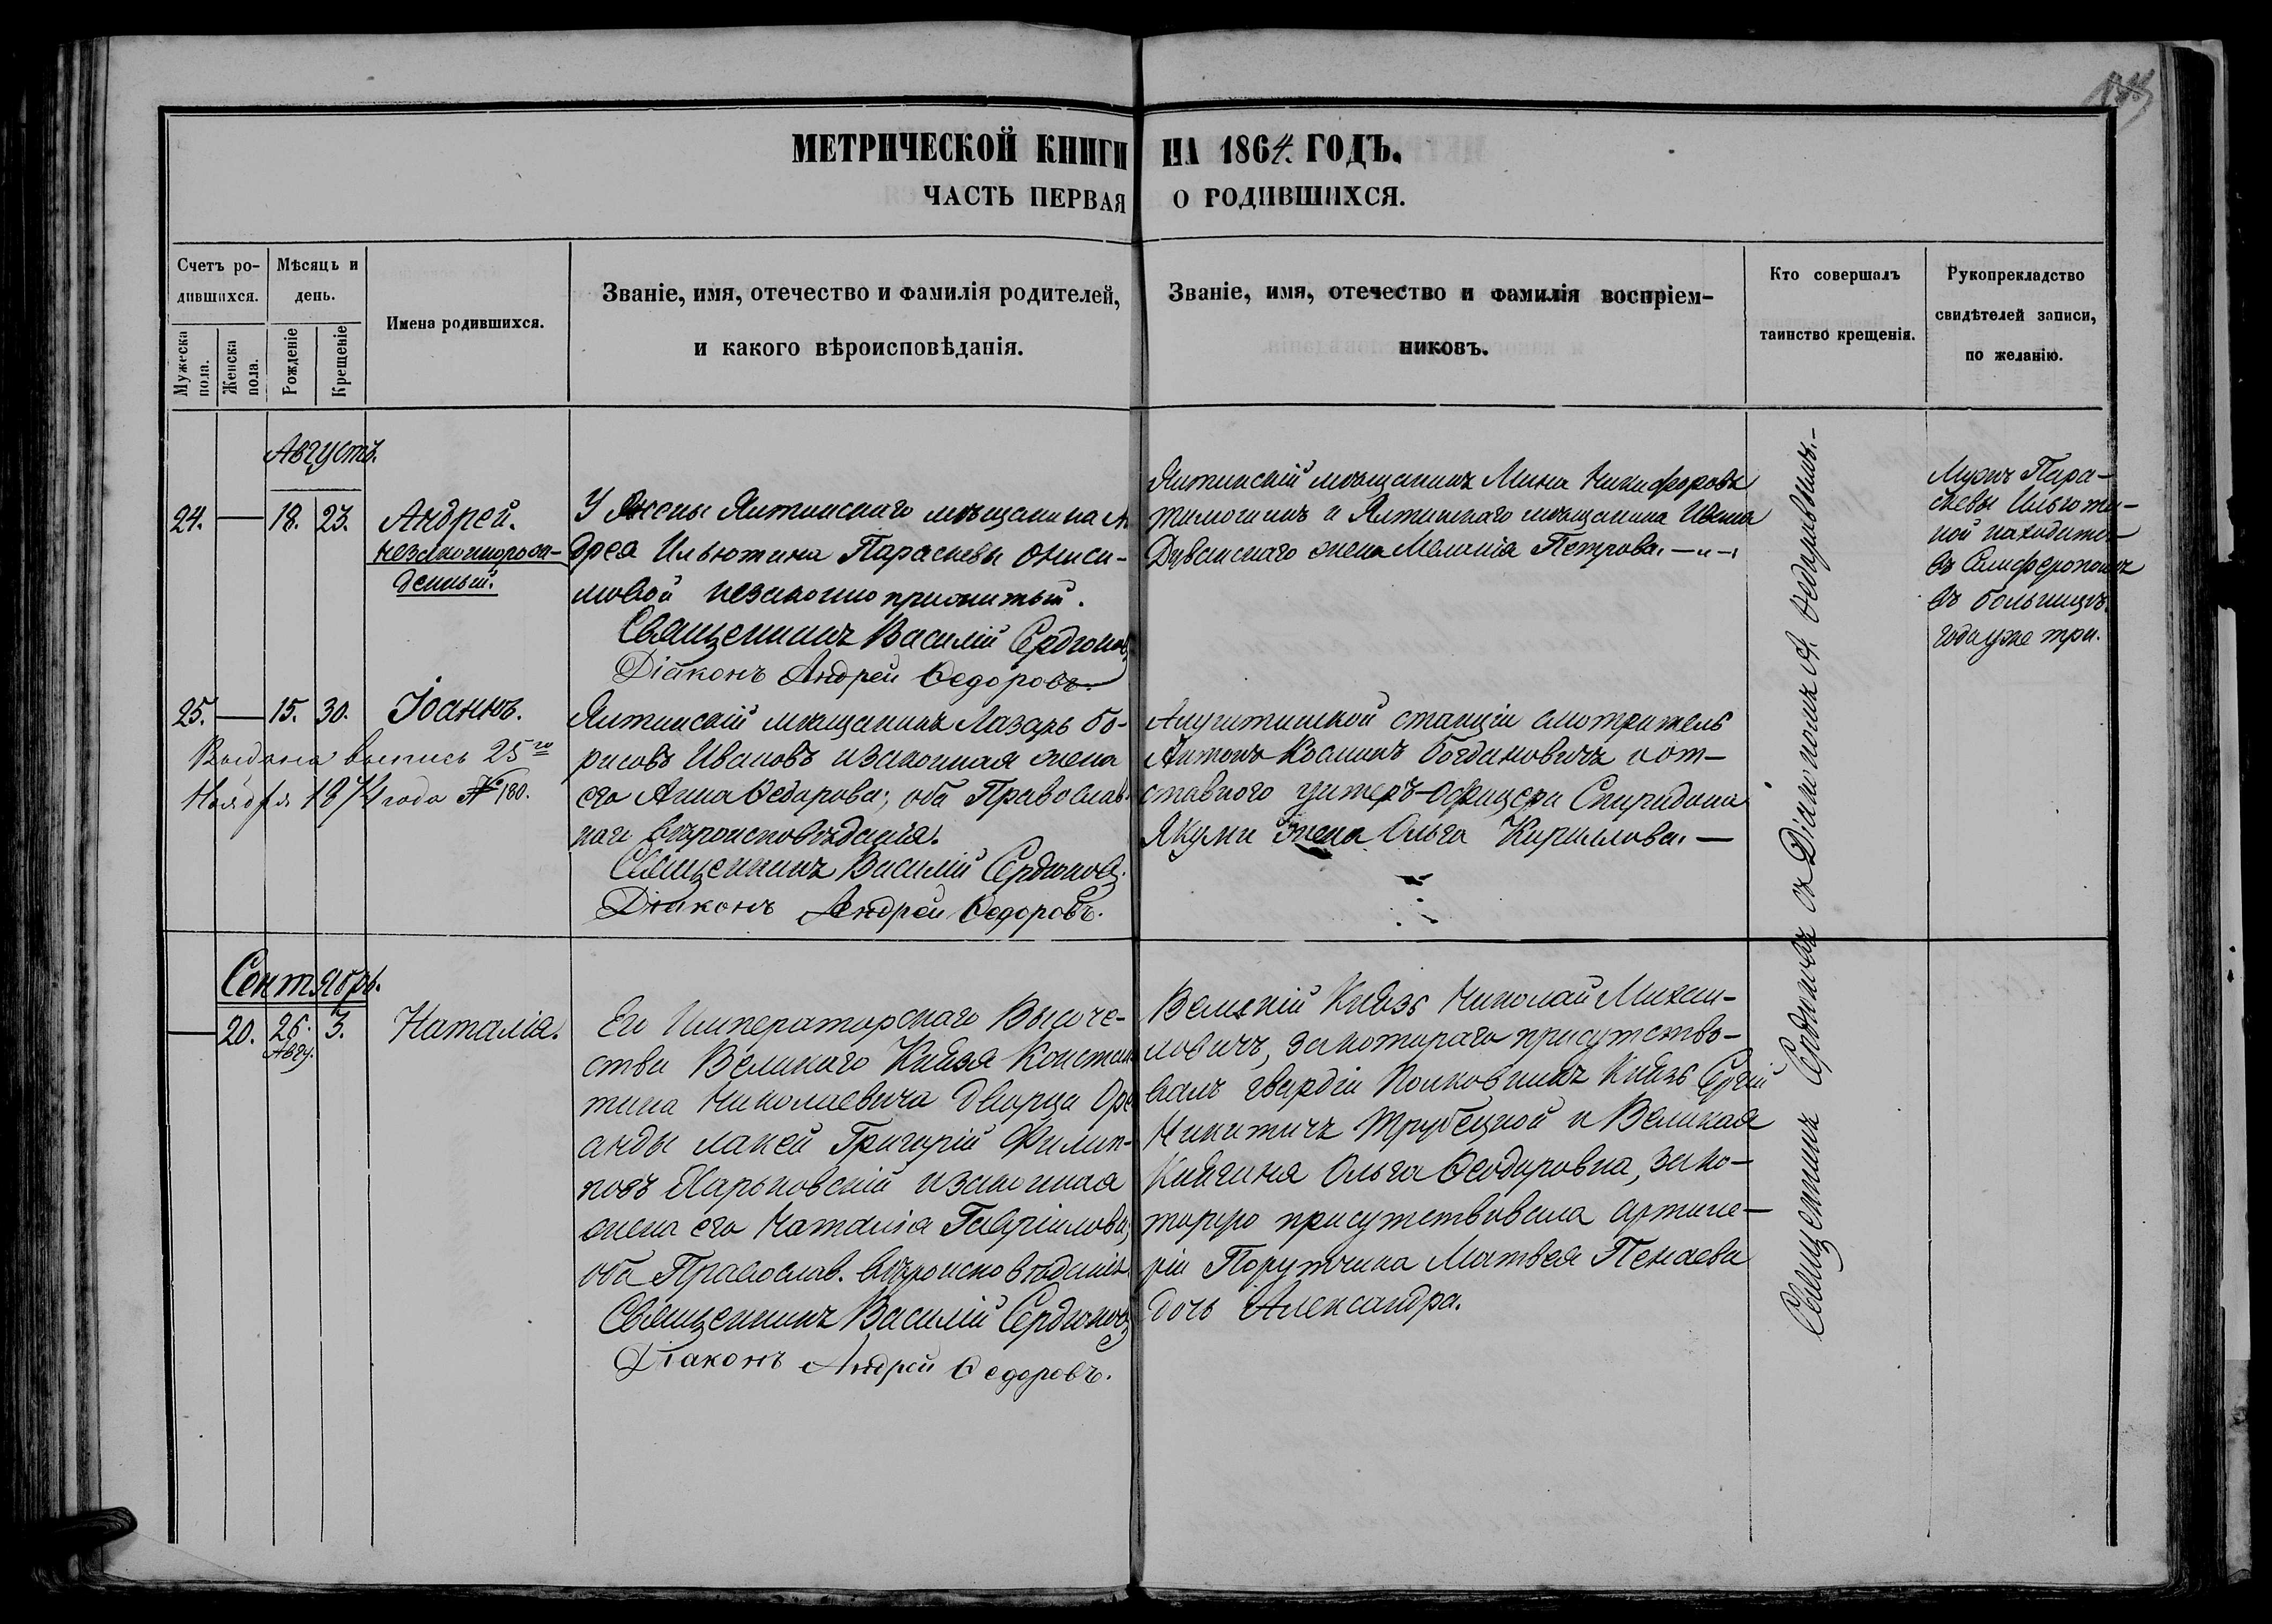 МЕТРИЧЕСКОЙ КНИГИ НА 1864. ГОДЪ.
ЧАСТЬ ПЕРВАЯ О РОДИВШИХСЯ.
Счетъ ро-
дившихся.
Мужеска
пола.
Женска
пола.
Мѣсяцъ и
день.
Рожденіе
Крещеніе
Имена родившихся.
Званіе, имя, отечество и фамилія родителей,
и какого вѣроисповѣданія.
Званіе, имя, отечество и фамилія воспріем-
никовъ.
Кто совершалъ
таинство крещенія.
Рукоприкладство
свидѣтелей записи,
по желанію.
Августъ.
24. — 18. 23. Андрей.
незаконнорож-
денный.
У жены Ялтинскаго мѣщанина Ан
дрея Ильютина Параскевы Ониси-
мовой незаконно прижитый.
Священникъ Василій Сердюковъ
Діаконъ Андрей Ѳедоровъ.
Ялтинскій мѣщанинъ Мина Никифоровъ
и Ялтинскаго мѣщанина Ивана
жена Меланія Петрова. —„—
Мужъ Пара-
скевы Ильюти-
ной находится
въ Симферополѣ
въ больницѣ
года уже три.
25. — 15. 30. Іоаннъ.
Выдана выпись 25го
Ноября 1874 года № 180.
Ялтинскій мѣщанинъ Лазарь Бо-
рисовъ Ивановъ и законная жена
его Анна Ѳедорова; оба Православ
наго вѣроисповѣданія.
Священникъ Василій Сердюковъ.
Діаконъ Андрей Ѳедоровъ.
станціи смотритель
Антонъ Богдановичъ и от-
ставного унтеръ-офицера Спиридона
Якуми жена Ольга Кириллова. —
Сентябрь.
— 20. 26. Авгу. 3. Наталія.
Его Императорскаго Высоче-
ства Великаго Князя Констан
тина Николаевича дворца Оре
анды лакей Григорій Филип-
повъ Харьковскій и законная
жена его Наталія Гавріилова,
оба Православ. вѣроисповѣданія.
Священникъ Василій Сердюковъ
Діаконъ Андрей Ѳедоровъ.
Великій Князь Николай Михаи-
ловичъ, за котораго присутство-
валъ гвардіи Полковникъ Князь Сергій
Никитичъ Трубецкой и Великая
Княгиня Ольга Ѳеодоровна, за ко-
торую присутствовала артиле-
ріи Поручика Матвея Пекаева
дочь Александра.
Священникъ Сердюковъ съ Діакономъ А. Ѳедоровымъ. —